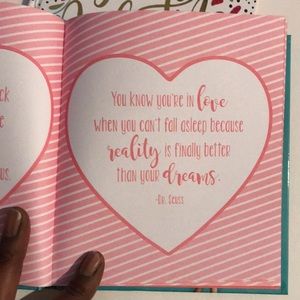 ck
e
us.
You know you're in love
when you can't fall asleep because
reality is finally better
than your dreams.
-Dr. Seuss